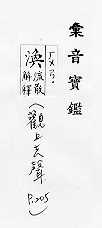 彙音寶鑑
ㄏㄨㄢˋ
渙 流散
解釋
(觀上去聲
P.205)